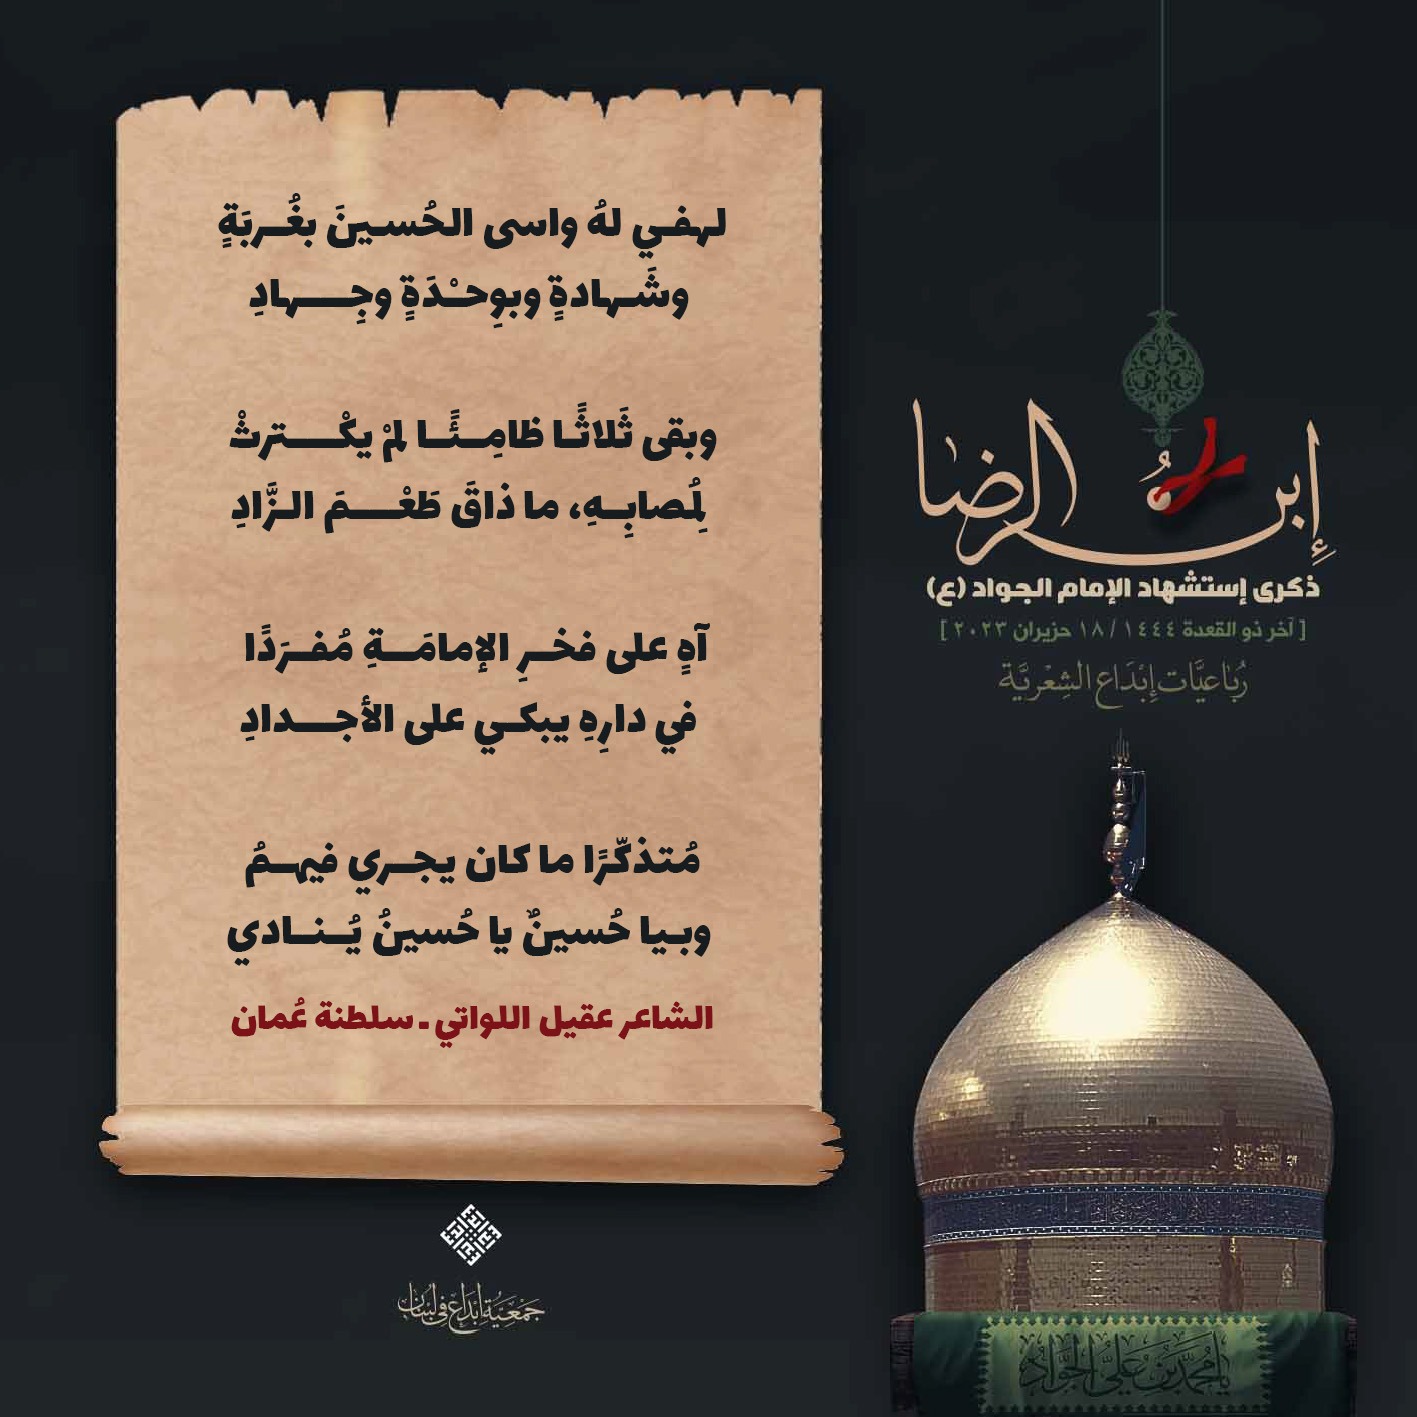 لهفـي لهُ واسى الحُسـينَ بغُــربَةٍ
وشَـهادةٍ وبوِحـْدَةٍ وجِــــهادِ
وبقى ثَلاثًـا ظامِــئًـا لمْ يكْــــترثْ
لِمُصابِــهِ، ما ذاقَ طَعْــــمَ الـزَّادِ
آهٍ على فخــرِ الإمامَــةِ مُفـرَدًا
في دارِهِ يبكـي على الأجــــدادِ
مُتذكّرًا ما كان يجــري فيهـمُ
وبـيا حُسينٌ يا حُسينُ يُــنــادي
الشاعر عقيل اللواتي ـ سلطنة عُمان
إبنُ الرضا
ذكرى إستشهاد الإمام الجواد (ع)
[ آخر ذو القعدة ١٤٤٤ / ١٨ حزيران ٢٠٢٣ ]
رُبَاعيَّات إبْدَاع الشِعْريَّة
يا محمد بن علي الجواد
جمعية إبداع في لبنان